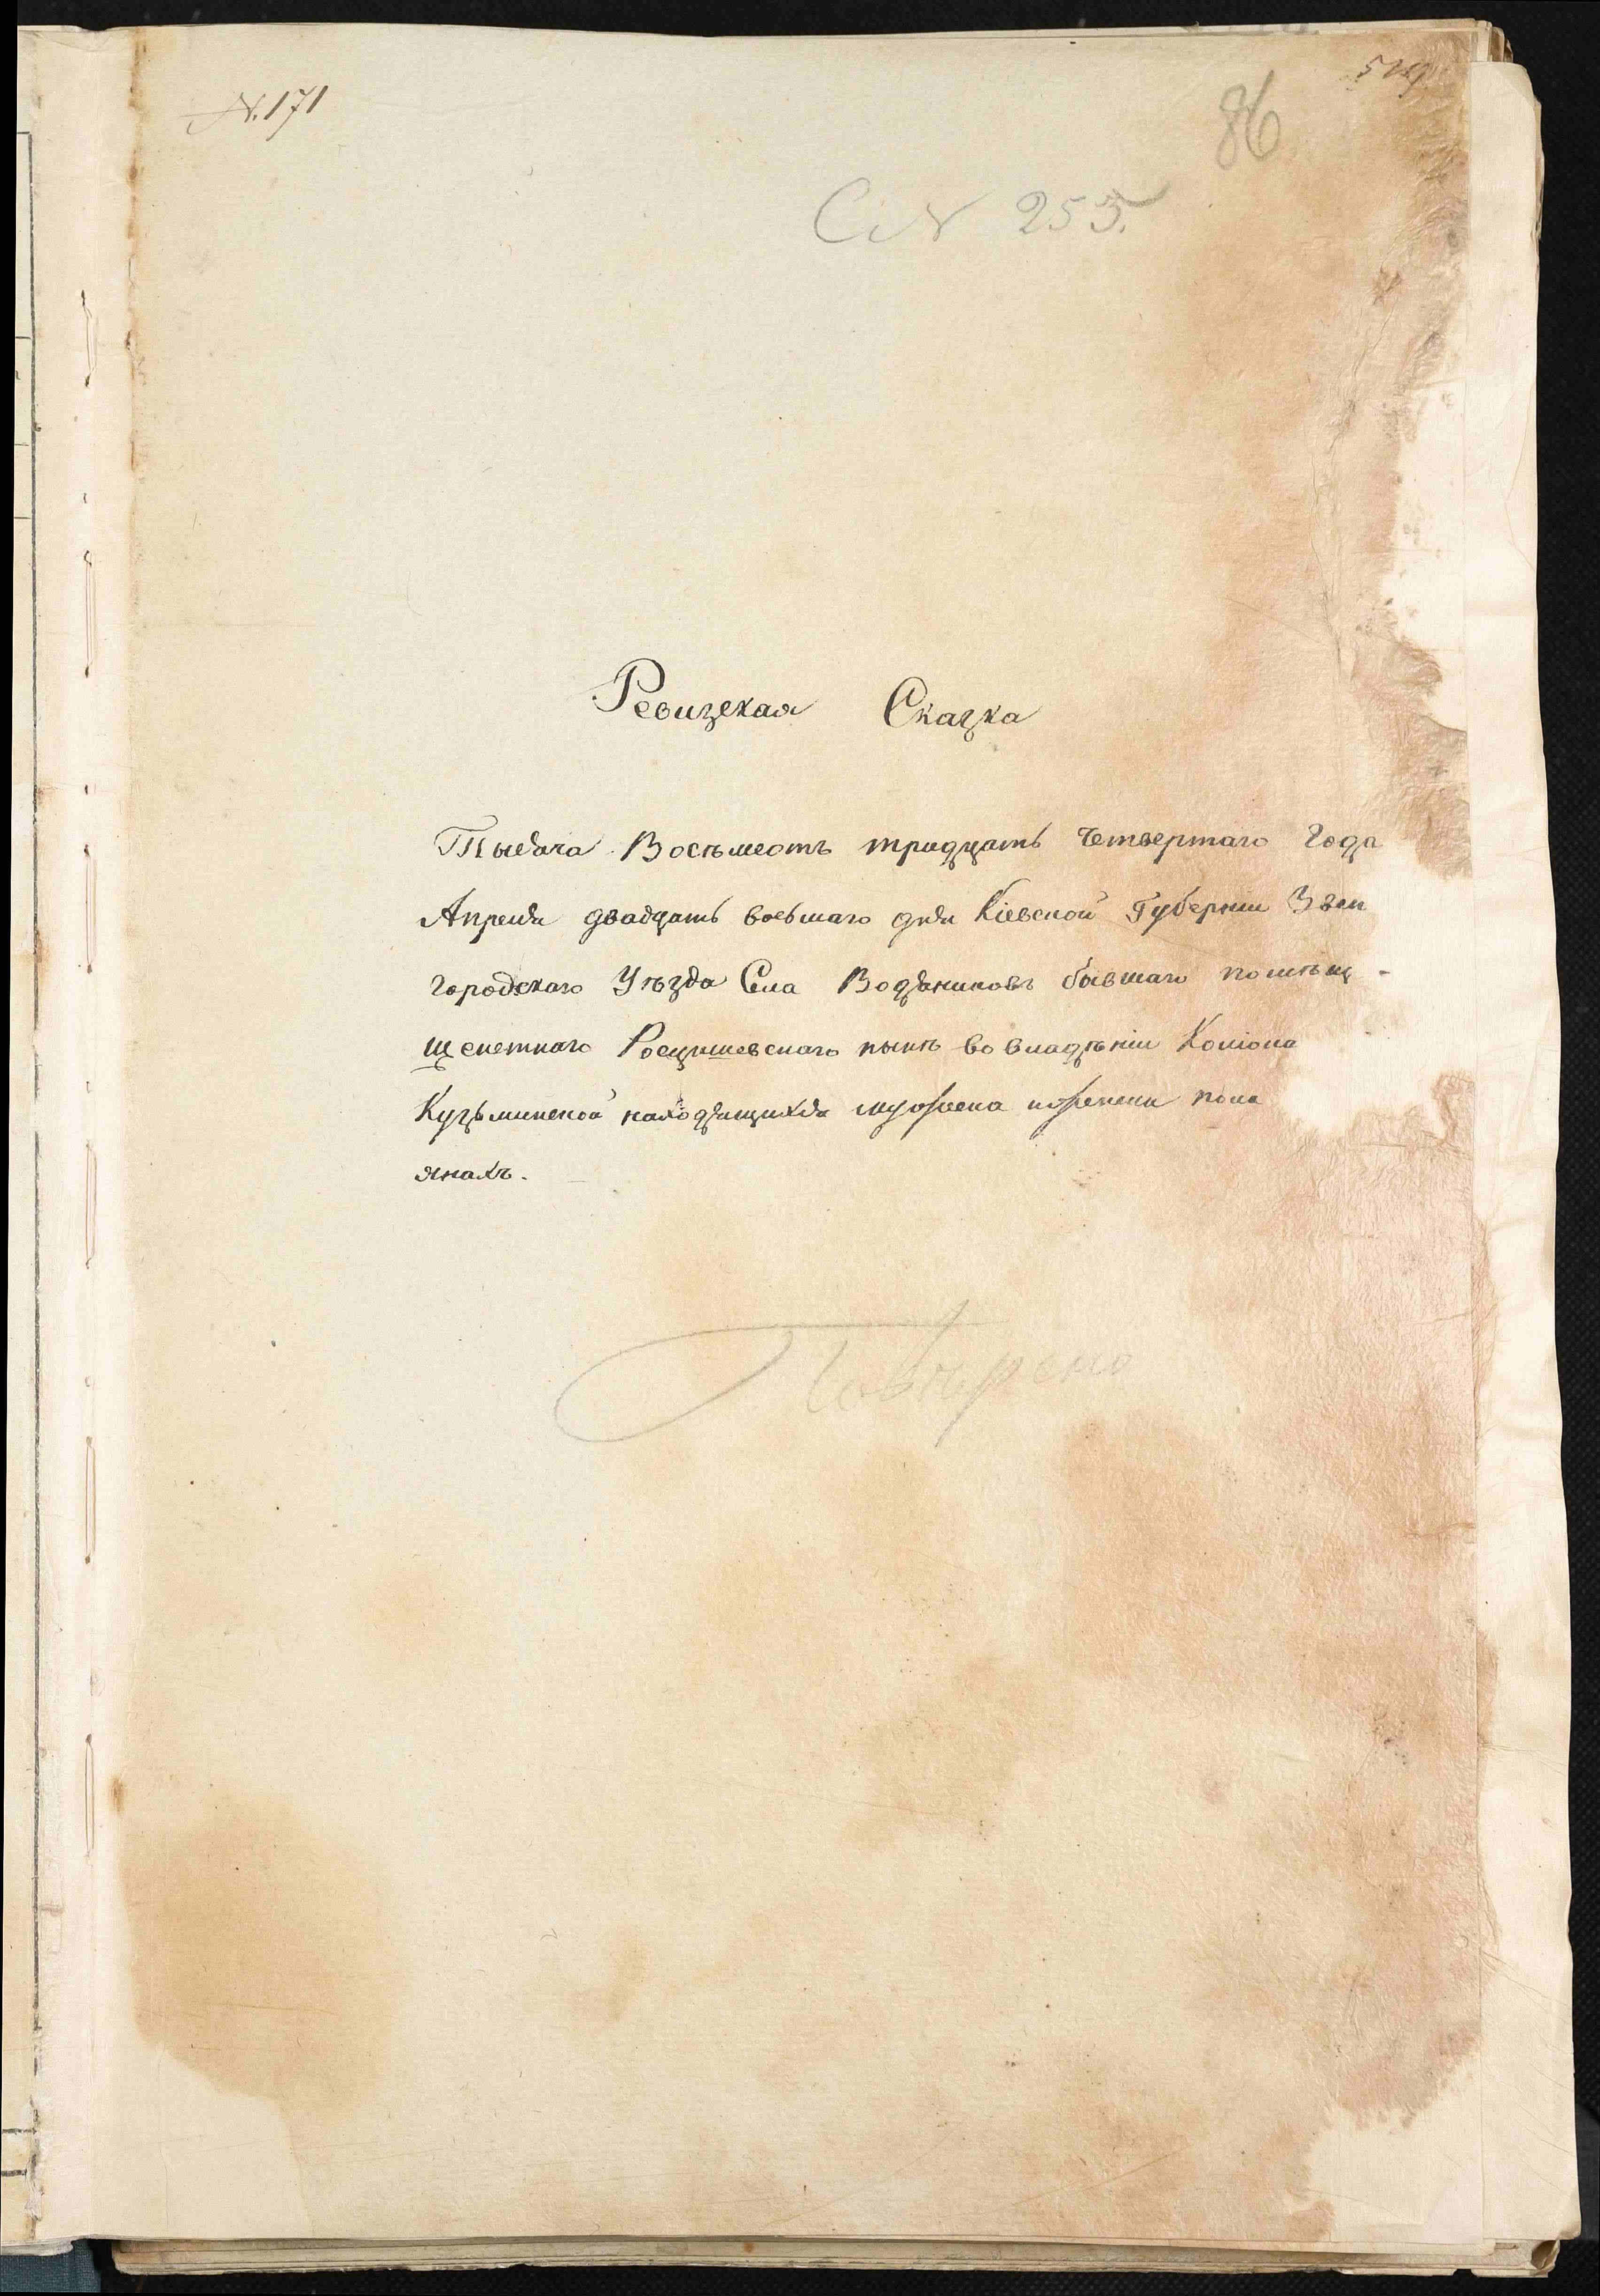 N. 171
86
С N 255.
Ревизская Сказка
Тысяча Восемсотъ тридцать четвертаго Года
Апреля двадцать восьмаго дня Кіевской Губерніи Звен
городскаго Уѣзда Села Водяниковъ бывшаго помѣщ-
Росцишевскаго нынѣ во владѣніи
Кузьминской находящихся мужеска и женска пола
янахъ.
Повѣрено